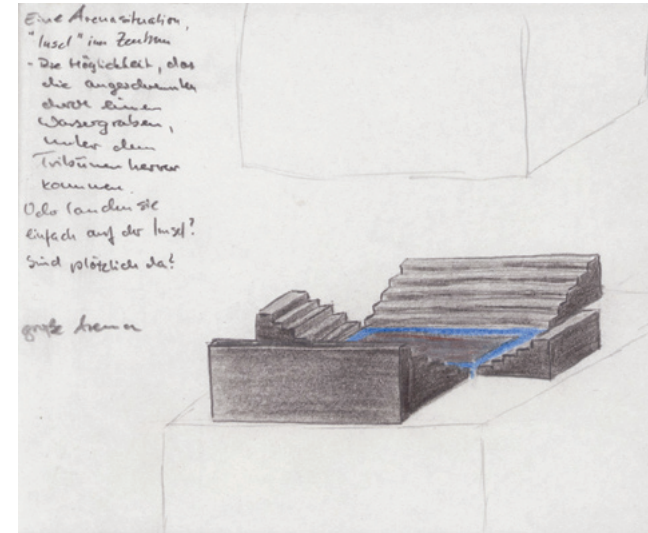 Eine Arenasituation,
"Insel" im Zentrum
- Die Möglichkeit, das
die angeschwemmten
durch einen
Wassergraben,
unter den
Tribünen hervor
kommen.
Oder landen sie
einfach auf der Insel?
Sind plötzlich da?
große Arena